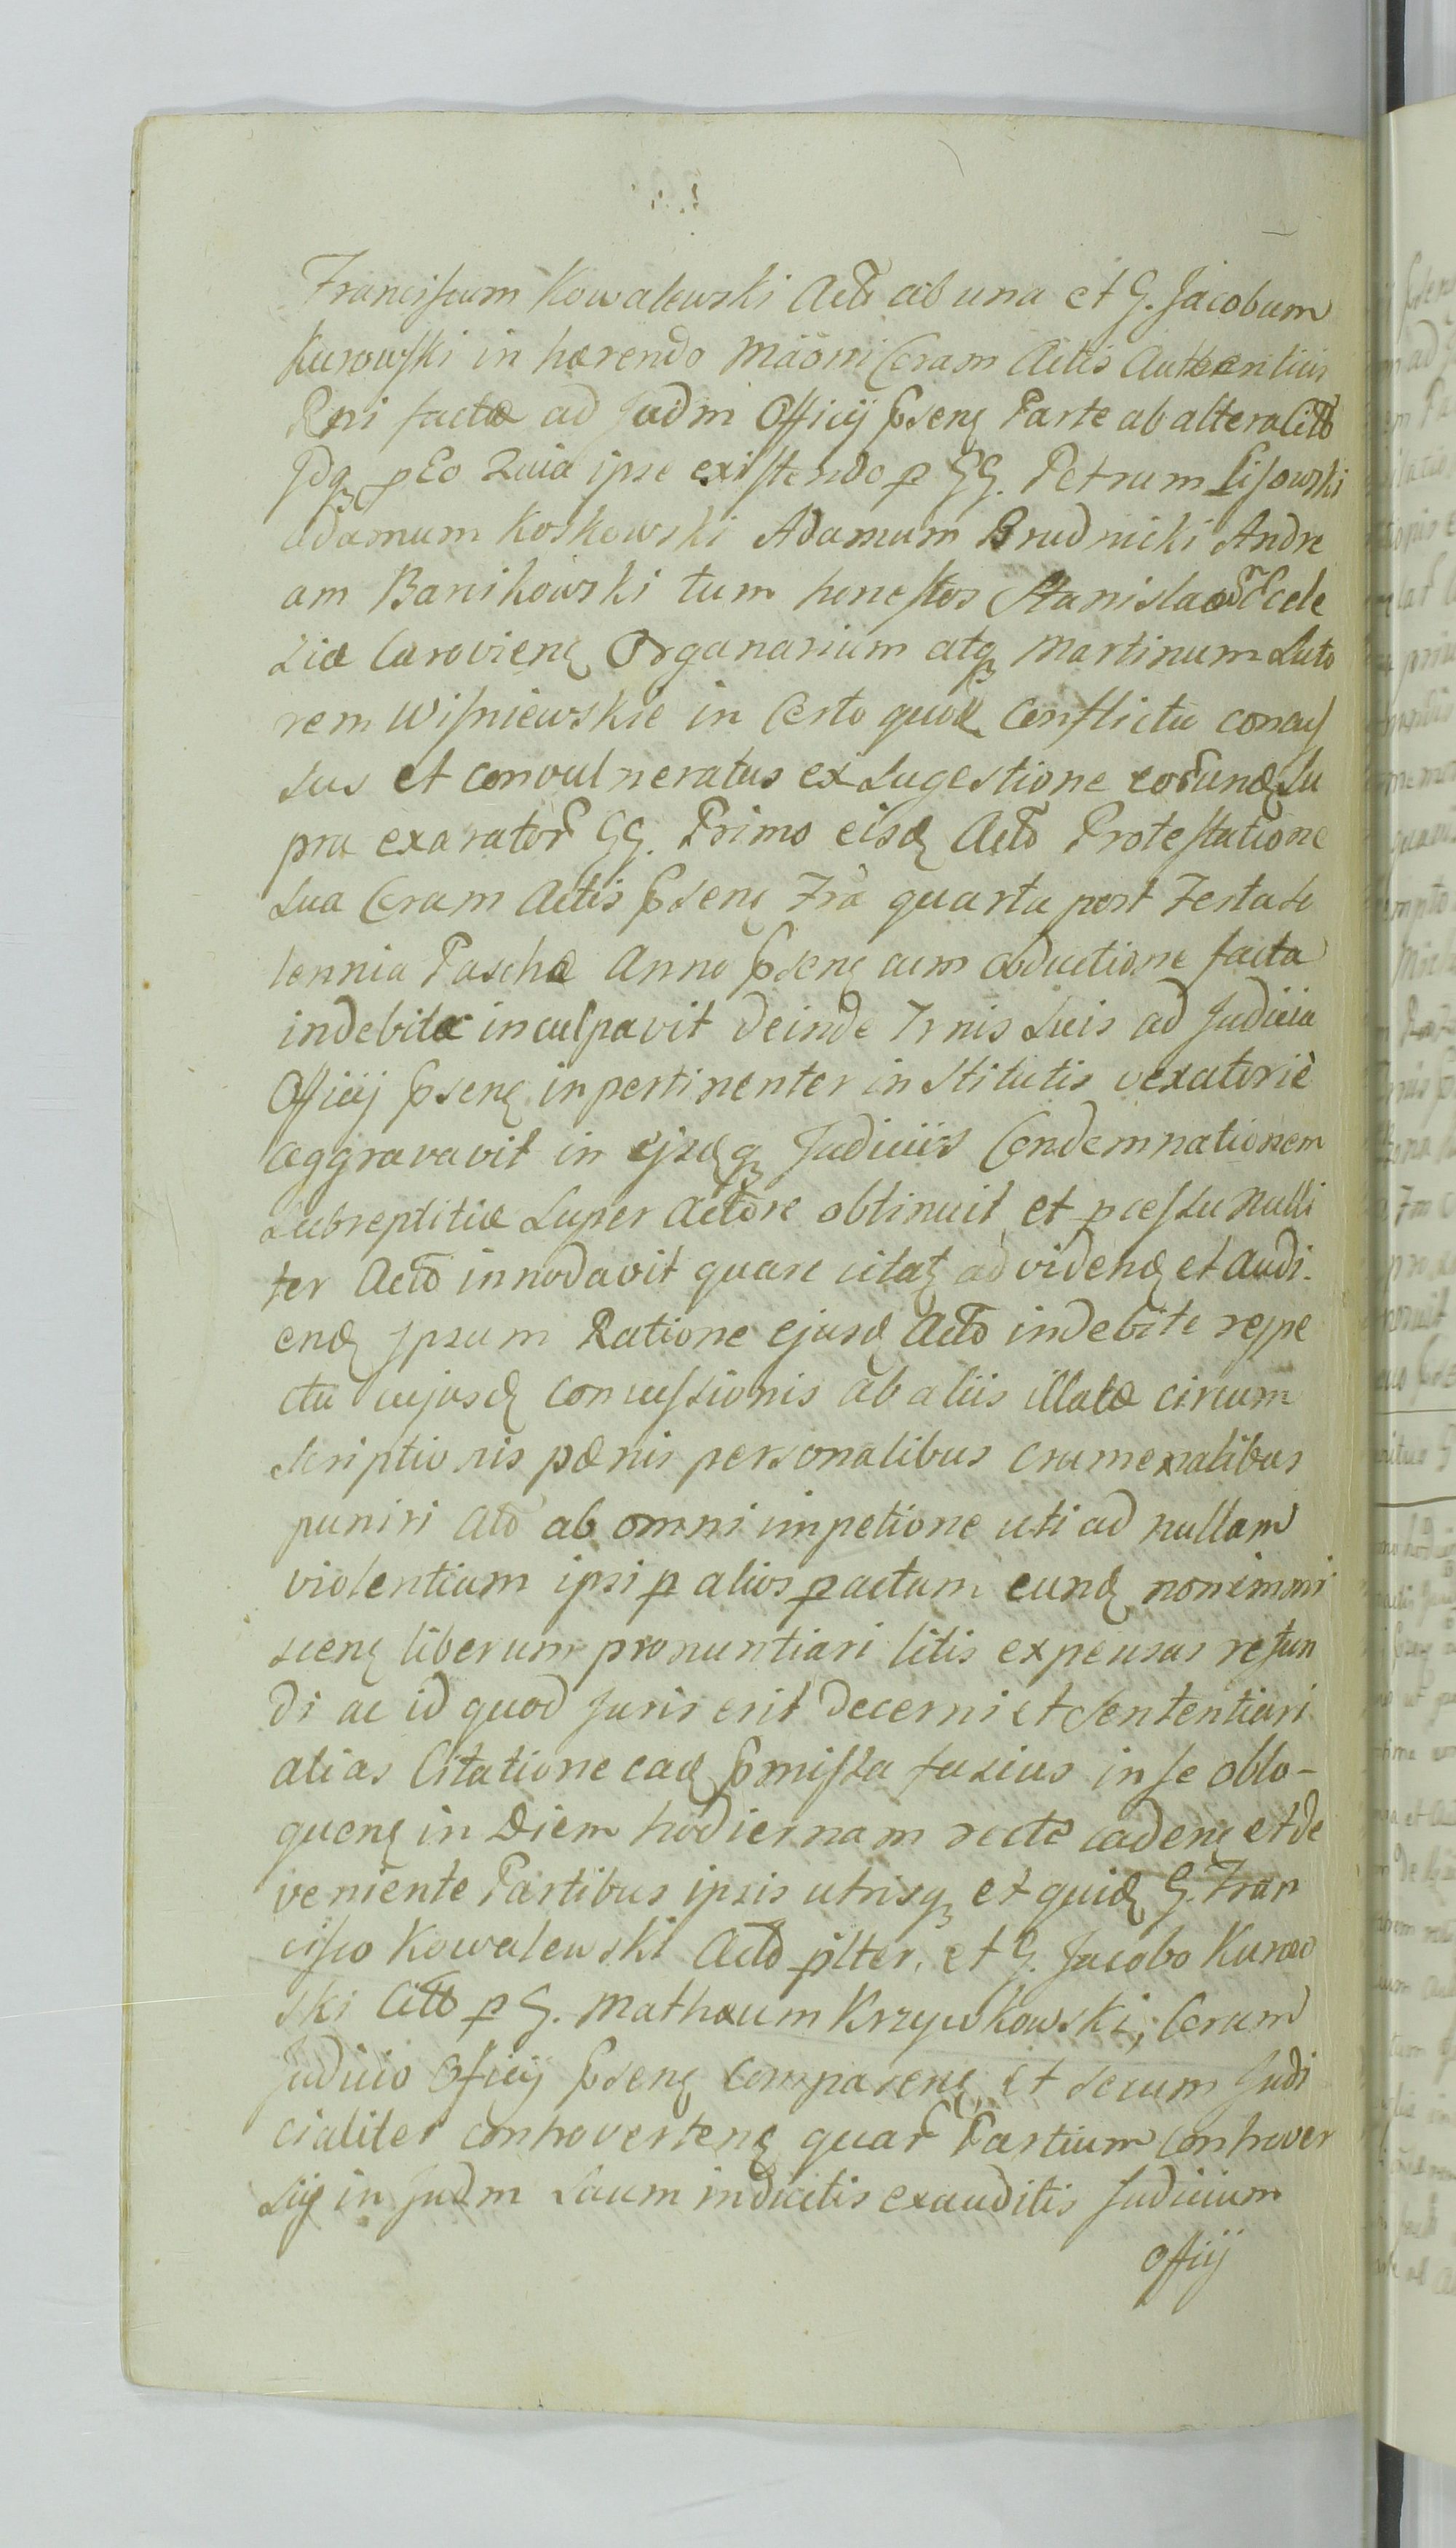 Franciscum Kowalewski Actō ab una et G. Jacobum
Kurowski in hærendo Mäōni Coram Actis Authenticis
Rni factæ ad Judm Officij p̄senꝫ Parte ab altera Cittō
Idqꝫ p Eo Quia ipse existendo p GG. Petrum Lisowski
Adamum Koskowski Adamum Brudnicki Andre
am Banikowski tum honestos Stanislaum Eccle
siæ Carovienꝫ Organarium atqꝫ Martinum Suto
rem Wisniewskie in Certo quodꝫ Conflictu concus
sus et convulneratus ex Sugestione eor̄undꝫ Su
pra exarator̄ GG. Primo eisdꝫ Actō Protestatione
Sua Coram Actis p̄senꝫ Frā quarta post Festa So
lennia Paschæ Anno p̄senꝫ cum obductione facta
indebite inculpavit deinde Trnis Suis ad Judicia
Officij p̄senꝫ inpertinenter institutis vexatoriè
aggravavit in ejsdꝫqꝫ Judiciis Condemnationem
Subreptitiæ Super Actōre obtinuit et pcessu nulli
ter Actō innodavit quare citatꝫ ad videndꝫ et Audi-
endꝫ Ipsum Ratione ejusdꝫ Actō indebite respe
ctu cujusdꝫ concussionis ab aliis illatæ circum
scriptionis pænis personalibus crumenalibus
puniri Actō ab omni impetione uti ad nullam
violentiam ipsi p alios pactam eundꝫ non immi
scenꝫ liberum pronuntiari litis expensas refun
di ac id quod Juris erit decerni et Sententiari
alias Citatione eadꝫ p̄missa fusius in se oblo-
quenꝫ in Diem hodiernam recte cadenꝫ et de
veniente Partibus ipsis utrisqꝫ et quidꝫ G. Fran
cisco Kowalewski Actō p̄lter, et G. Jacobo Kurow
ski Cittō p G. Mathæum Krzywkowski, Coram
Judicio Officij p̄senꝫ comparenꝫ et secum Judi
cialiter controvertenꝫ quar̄ Partium Controver
sijs in Judm Suum inductis exauditis Judicium
Officij